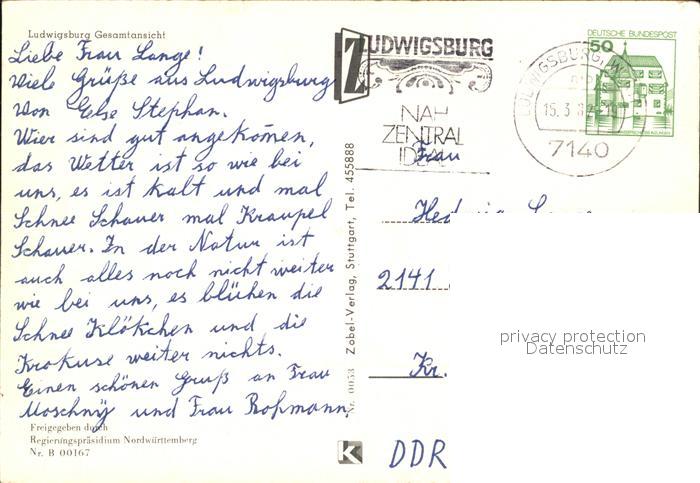 Ludwigsburg Gesamtansicht
Liebe Frau Lange!
Viele Grüße aus Ludwigsburg
von Else Stephan.
Wier sind gut angekomen,
das Wetter ist so wie bei
uns, es ist kalt und mal
Schnee Schauer mal Kraupel
Schauer. In der Natur ist
auch alles noch nicht weiter
wie bei uns, es blühen die
Schnee Klökchen und die
Krokuse weiter nichts.
Einen schönen Gruß an Frau
Moschny und Frau Roßmann.
Freigegeben durch
Regierungspräsidium Nordwürttemberg
Nr. B 00167
Nr. 0053 Zobel-Verlag, Stuttgart, Tel. 455888
LUDWIGSBURG
NAH
ZENTRAL
IDEAL
LUDWIGSBURG, W
15.3.
7140
DEUTSCHE BUNDESPOST
50
Frau
2141
Kr.
DDR
K
privacy protection
Datenschutz